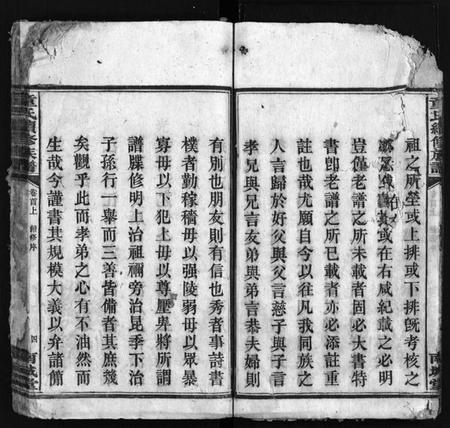 祖之所塋或上排或下排既考核之
或在右咸紀載之必明
豈僅老譜之所未載者固必大書特
書卽老譜之所已載者亦必添註重
註也哉尤願自今以往凡我同族之
人言歸於好父與父言慈子與子言
孝兄與兄言友弟與弟言恭夫婦則
有別也朋友則有信也秀者事詩書
樸者勤稼穡毋以强陵弱毋以眾暴
寡毋以下犯上毋以尊壓卑將所謂
譜牒修明上治祖禰旁治昆季下治
子孫行一舉而三善皆備者其庶幾
矣觀乎此而孝弟之心有不油然而
生哉今謹書其規模大義以弁諸簡
童氏續修族譜
卷首上
續修序
四